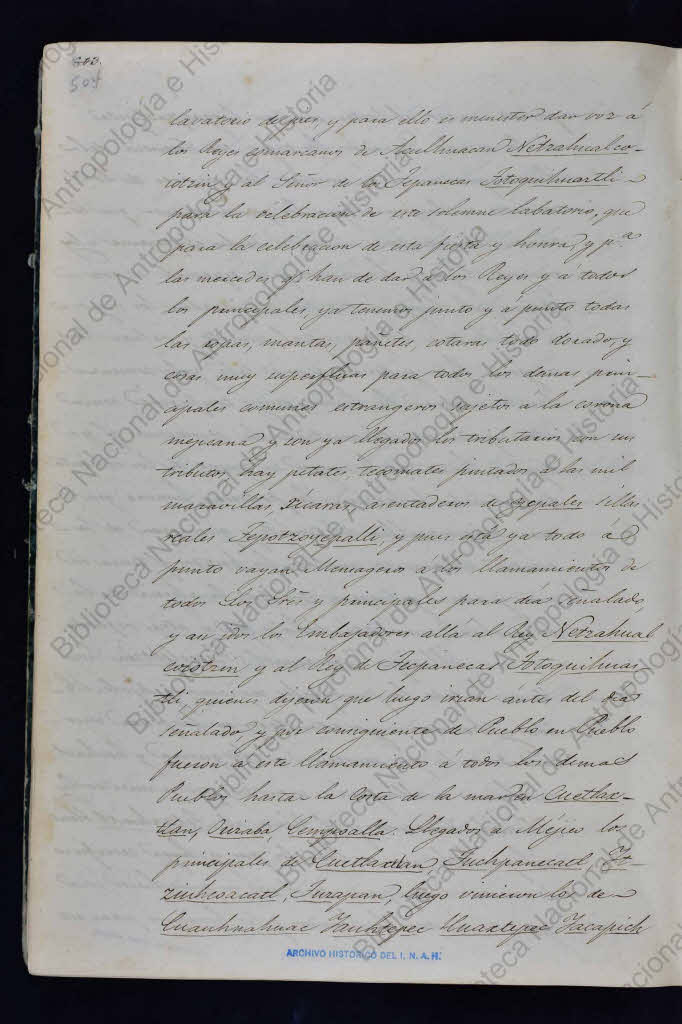 503.
504
lavatorio de pies, y para ello es menester dar voz á
los Reyes comarcanos de Aculhuacan Netzahualco-
iotzin y al Señor de los Tepanecas Totoquihuaztli
para la celebracion de este solemne labatorio, que
para la celebracion de esta fiesta y honra, y pª
las mercedes qe han de dar á los Reyes y a todos
los principales, ya tenemos junto y á punto todas
las ropas, mantas, pañetes, cotaras todo dorado, y
cosas muy superfluas para todos los demas prin-
cipales comunes estrangeros sujetos a la corona
mejicana y son ya llegados los tributarios con sus
tributos, hay petates tecomates pintados á las mil
maravillas, xícaras, asentaderos de icpales sillas
reales Tepotzoycpalli, y pues está ya todo á
punto vayan Mensageros a los llamamientos de
todos los Sres y principales para dia señalado,
y an idos los Embajadores allá al Rey Netzahual
coiotzin y al Rey de Tecpanecas Totoquihuaz
tli, quienes dijeron que luego irian ántes del dia
señalado, y por consiguiente de Pueblo en Pueblo
fueron a este llamamiento á todos los demas
Pueblos hasta la Costa de la mar en Cuetlax-
tlan, Orizaba, Cempoalla. Llegados a Méjico los
principales de Cuetlaxtlan, Tuchpanecatl, Tt-
ziuhcoacatl, Tuzapan, luego vinieron los de
Cuauhnahuac Yauhtepec Huaxtepec Yacapich
ARCHIVO HISTORICO DEL I. N. A. H.
Biblioteca Nacional de Antropología e Historia